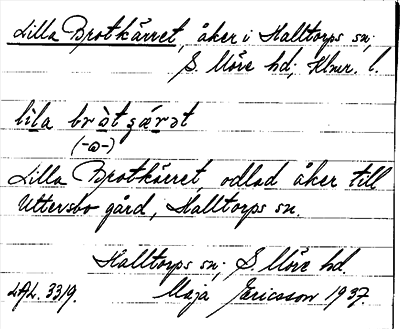 Lilla Brotkärret, åker i Halltorps sn;
S. Möre hd; Klmr. l.
lila brὰtɕærət
(-ɷ-)
Lilla Brotkärret, odlad åker till
Uttersbo gård, Halltorps sn.
Halltorps sn; S. Möre hd.
LAL. 3319. Maja Ericsson 1937.